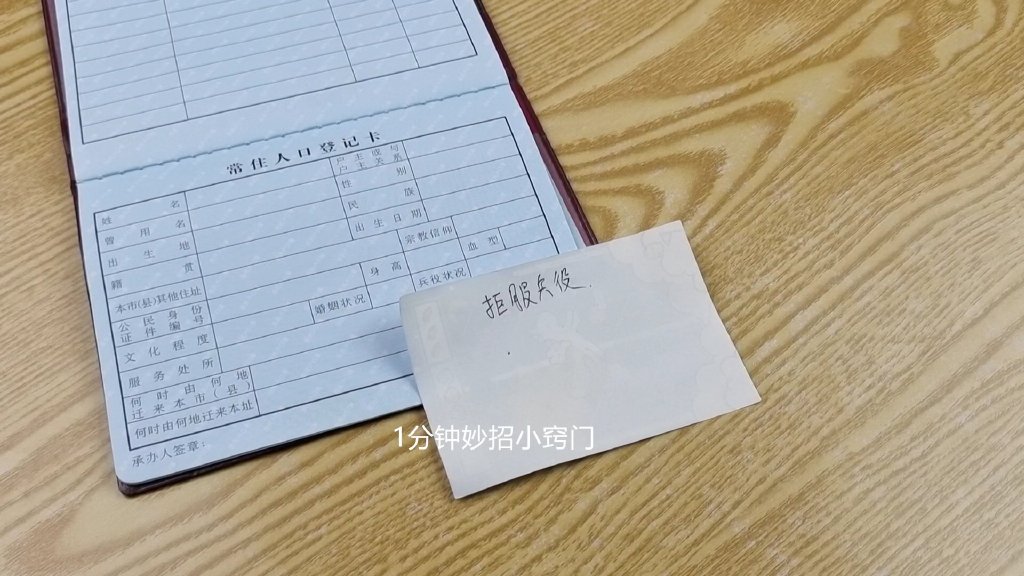 常住人口登记卡
姓名
户主或与
户主关系
曾用名
性别
出生地
民族
籍贯
出生日期
本市(县)其他住址
宗教信仰
公民身份
证件编号
身高
血型
文化程度
婚姻状况
兵役状况
服务处所
何时由何地
迁来本市(县)
何时由何地迁来本址
承办人签章:
拒服兵役.
1分钟妙招小窍门